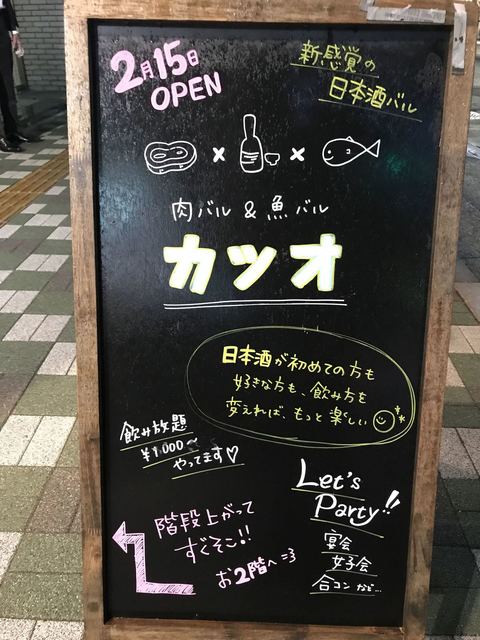 2月15日
OPEN
新感覚の
日本酒バル
×
×
肉バル & 魚バル
カツオ
日本酒が初めての方も
好きな方も、飲み方を
変えれば、もっと楽しい
飲み放題
¥1,000〜
やってます♡
Let's
Party!!
宴会
女子会
合コン など…
階段上がって
すぐそこ!!
お2階へ